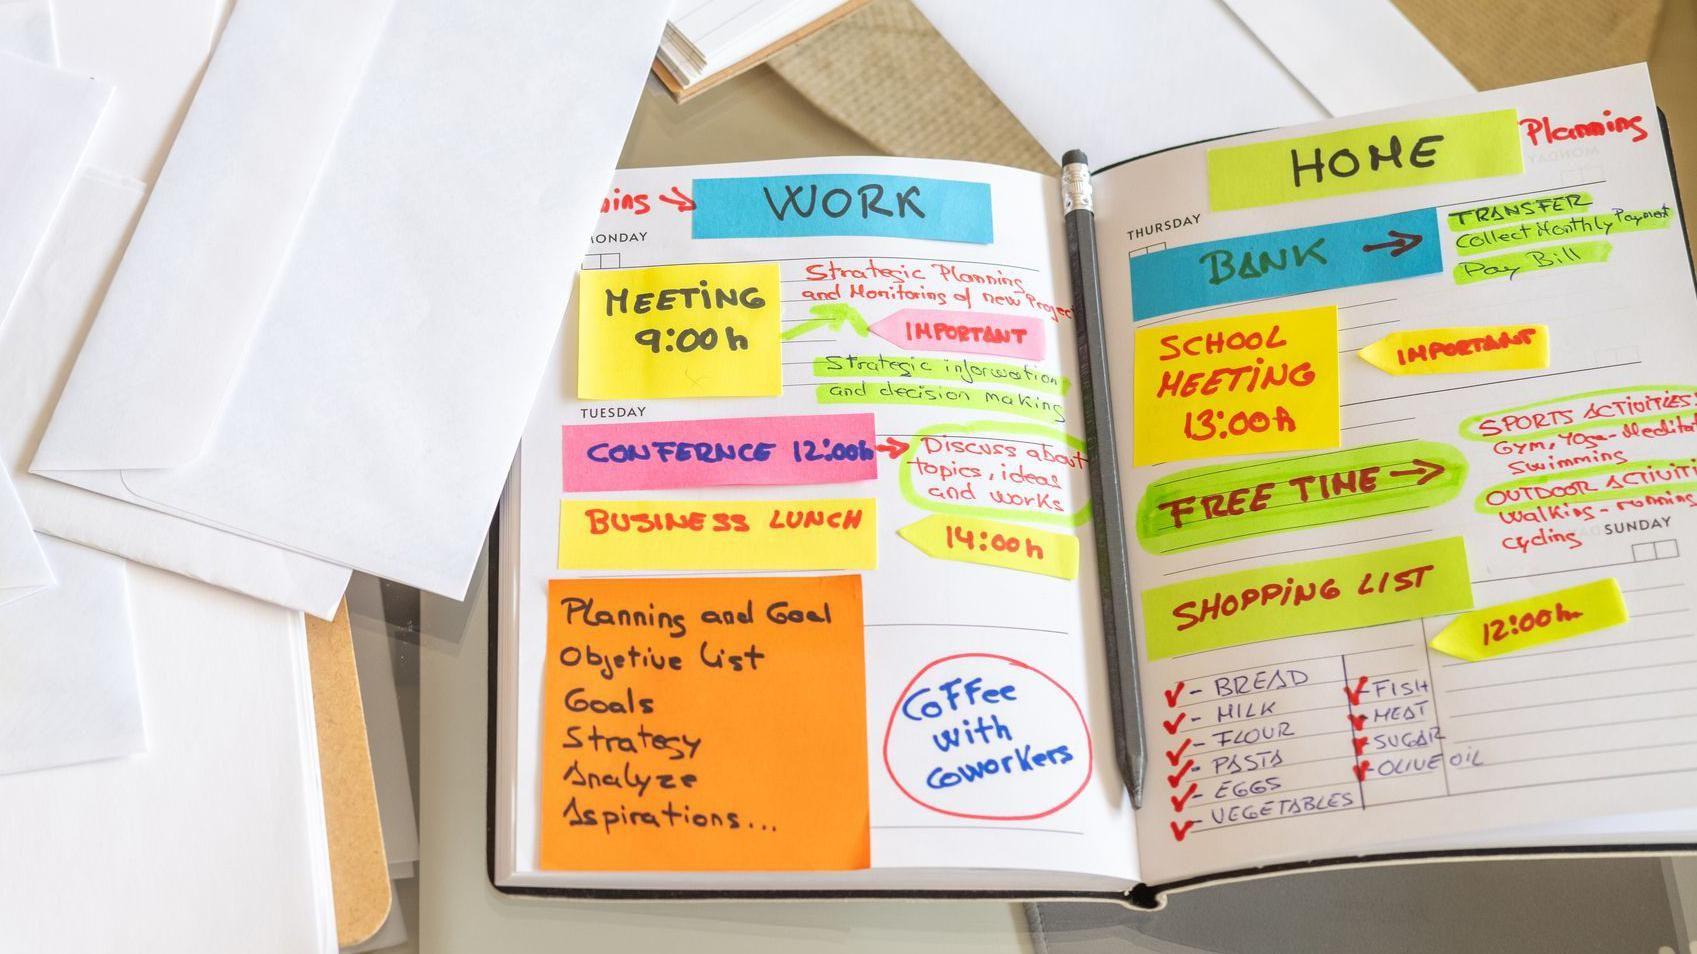 WORK
MONDAY
MEETING
9:00h
Strategic Planning
and Monitoring of new Project
IMPORTANT
Strategic information
and decision making
TUESDAY
CONFERNCE 12:00h
Discuss about
topics, ideas
and works
BUSINESS LUNCH
14:00h
Planning and Goal
Objetive List
Goals
Strategy
Analyze
Aspirations...
Coffee
with
coworkers
HOME
Planning
THURSDAY
BANK
TRANSFER
Collect Monthly Payment
Pay Bill
SCHOOL
MEETING
13:00h
IMPORTANT
FREE TIME
SPORTS ACTIVITIES:
Gym, Yoga-Meditat
Swimming
OUTDOOR ACTIVITI
Walking - running
cycling
SUNDAY
SHOPPING LIST
12:00h
- BREAD
- MILK
- FLOUR
- PASTA
- EGGS
- VEGETABLES
- FISH
- MEAT
- SUGAR
- OLIVE OIL